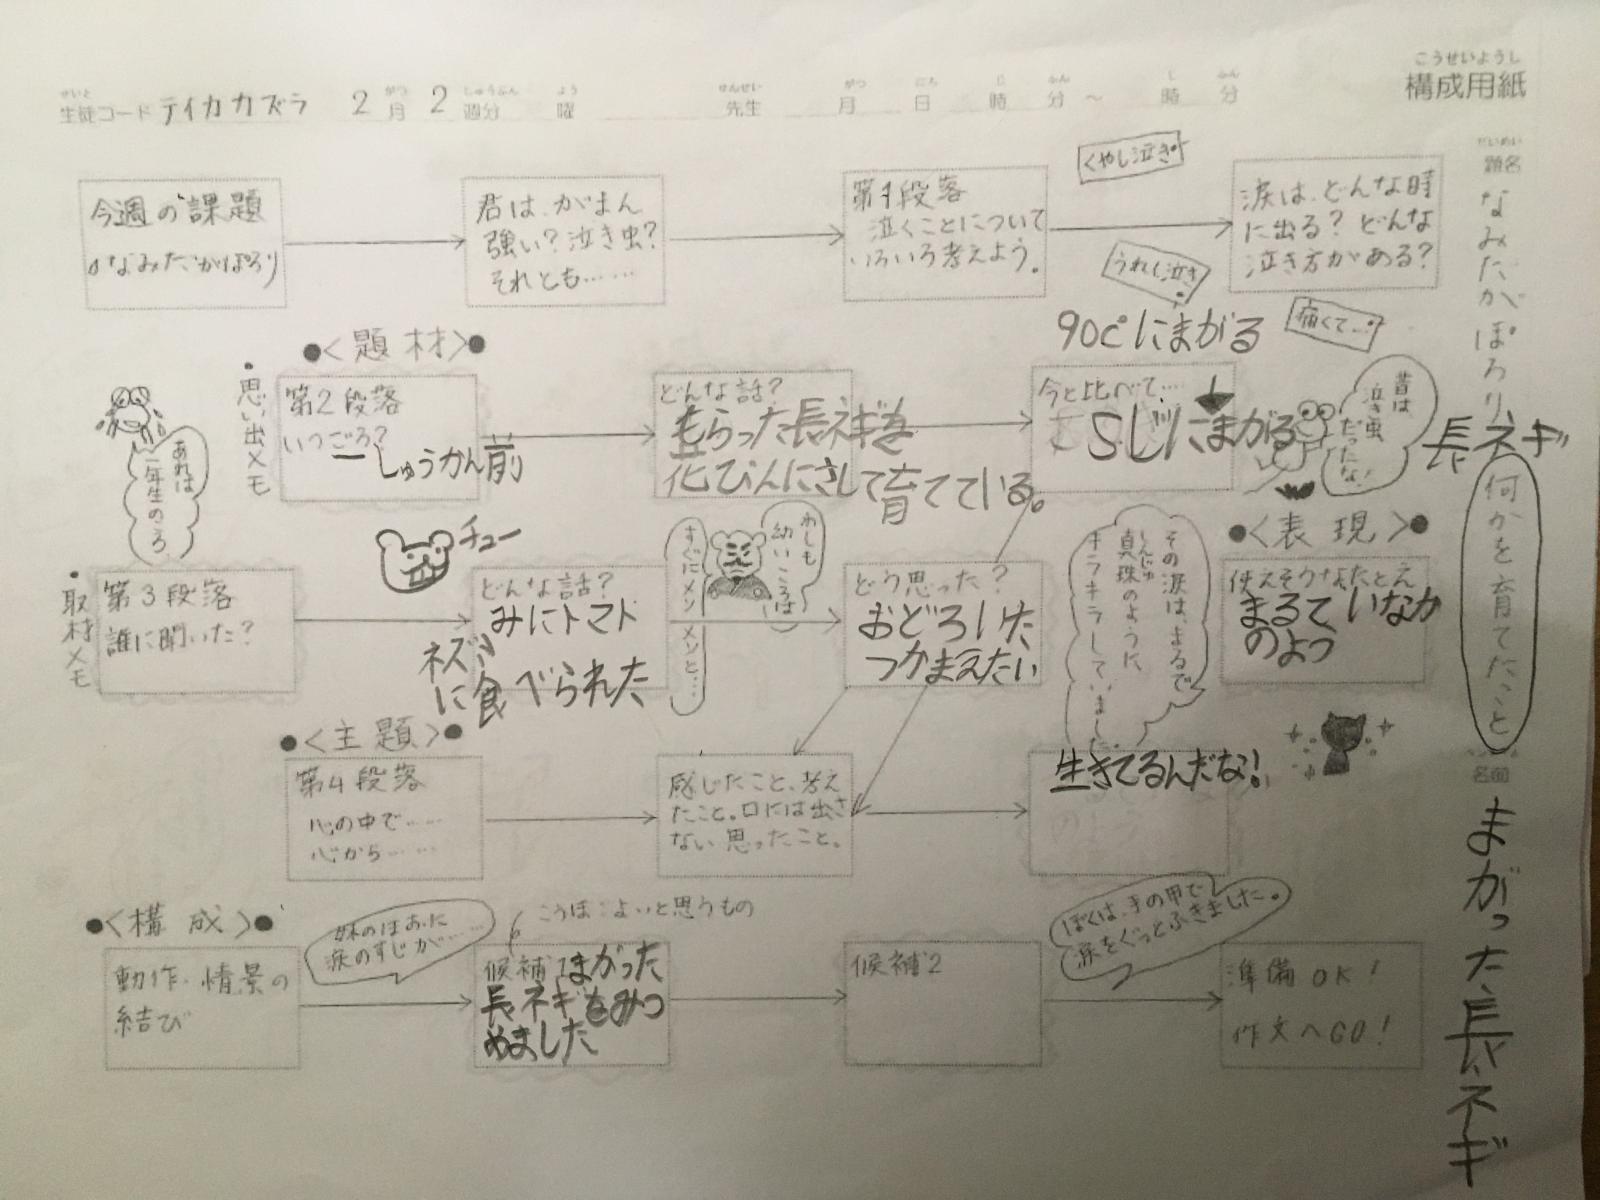 こうせいようし
構成用紙
せいと
生徒コード テイカカズラ 2月 2週分 曜 先生 月 日 時 分 〜 時 分
がつ しゅうぶん よう せんせい がつ にち じ ふん じ ふん
だいめい
題名
なみだがぽろり
長ネギ
何かを育てたこと
名前
まがった長ネギ
今週の課題
なみだがぽろり
君は、がまん
強い?泣き虫?
それとも……
第1段落
泣くことについて
いろいろ考えよう。
くやし泣き
うれし泣き
痛くて…
涙は、どんな時
に出る?どんな
泣き方がある?
●<題材>●
・思い出メモ
第2段落
いつごろ?
一しゅうかん前
どんな話?
もらった長ネギを
花びんにさして育てている。
90℃にまがる
今と比べて……
5じにまがる
昔は、
泣き虫
だったな!
あれは
一年生のころ
・取材メモ
第3段落
誰に聞いた?
チュー
どんな話?
みにトマト
ネズミ
に食べられた
わしも
幼いころは
すぐにメソメソと…
どう思った?
おどろいた
つかまえたい
その涙は、まるで
真珠のように、
しんじゅ
キラキラしていました。
●<表現>●
使えそうなたとえ
まるていなか
のよう
●<主題>●
第4段落
心の中で……
心から……
感じたこと、考え
たこと。口には出さ
ない思ったこと。
生きてるんだな!
●<構成>●
動作・情景の
結び
妹のほおに
涙のすじが……
こうほ:よいと思うもの
候補1
まがった
長ネギをみつ
めました
候補2
ぼくは、手の甲で
涙をぐっとふきました。
準備OK!
作文へGO!